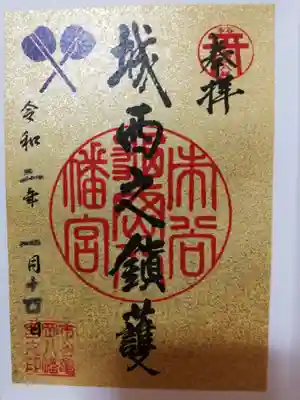 奉拝
城西之鎮護
市谷
幡宮
令和二年一月十四日